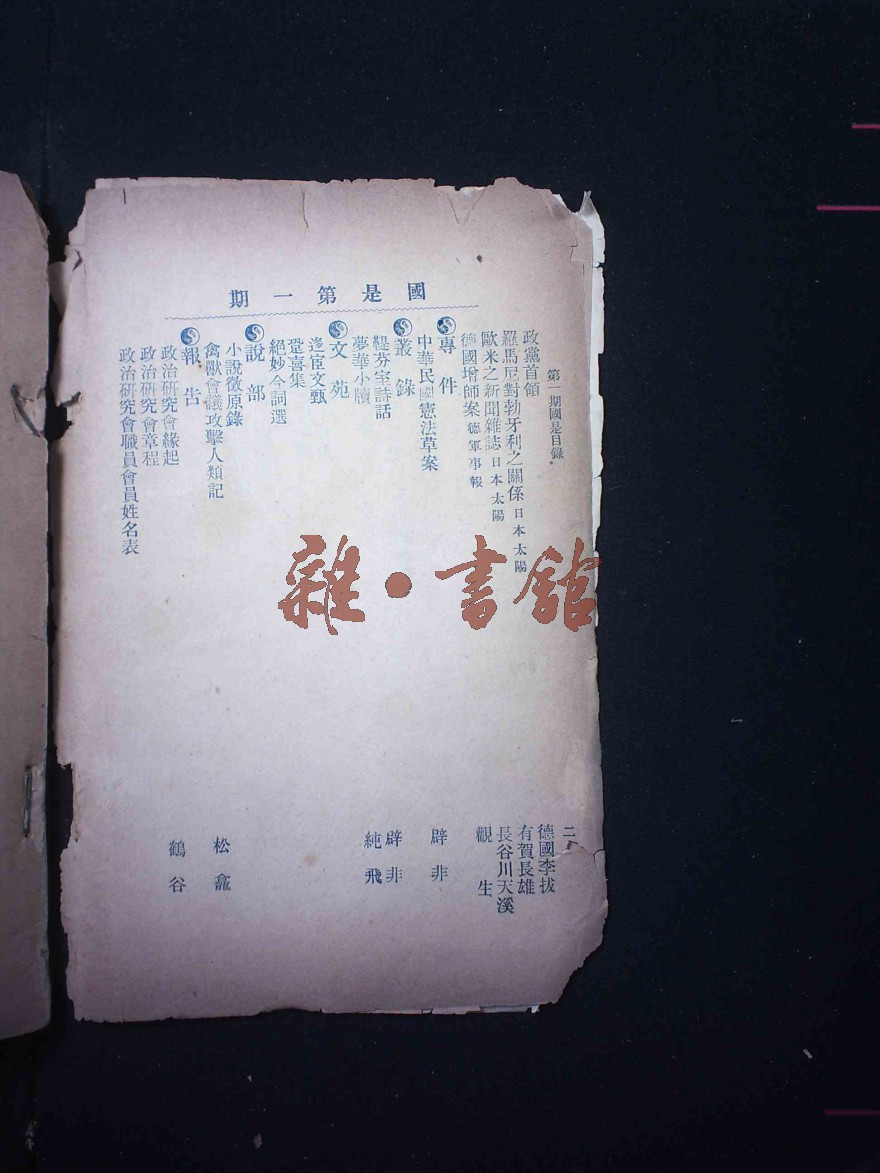 國是第一期
第一期國是目錄
二
政黨首領
德國李拔
羅馬尼對勃牙利之關係 日本太陽
有賀長雄
歐米之新聞雜誌 日本太陽
長谷川天溪
德國增師案 德軍事報
觀生
專件
中華民國憲法草案
辟非
叢錄
鞮芬室詩話
辟非
夢華小牘
純飛
文苑
逡宦文甄
跫喜集
絕妙今詞選
說部
小說徵原錄
松龕
禽獸會議攻擊人類記
鶴谷
報告
政治研究會緣起
政治研究會章程
政治研究會職員會員姓名表
雜·書館